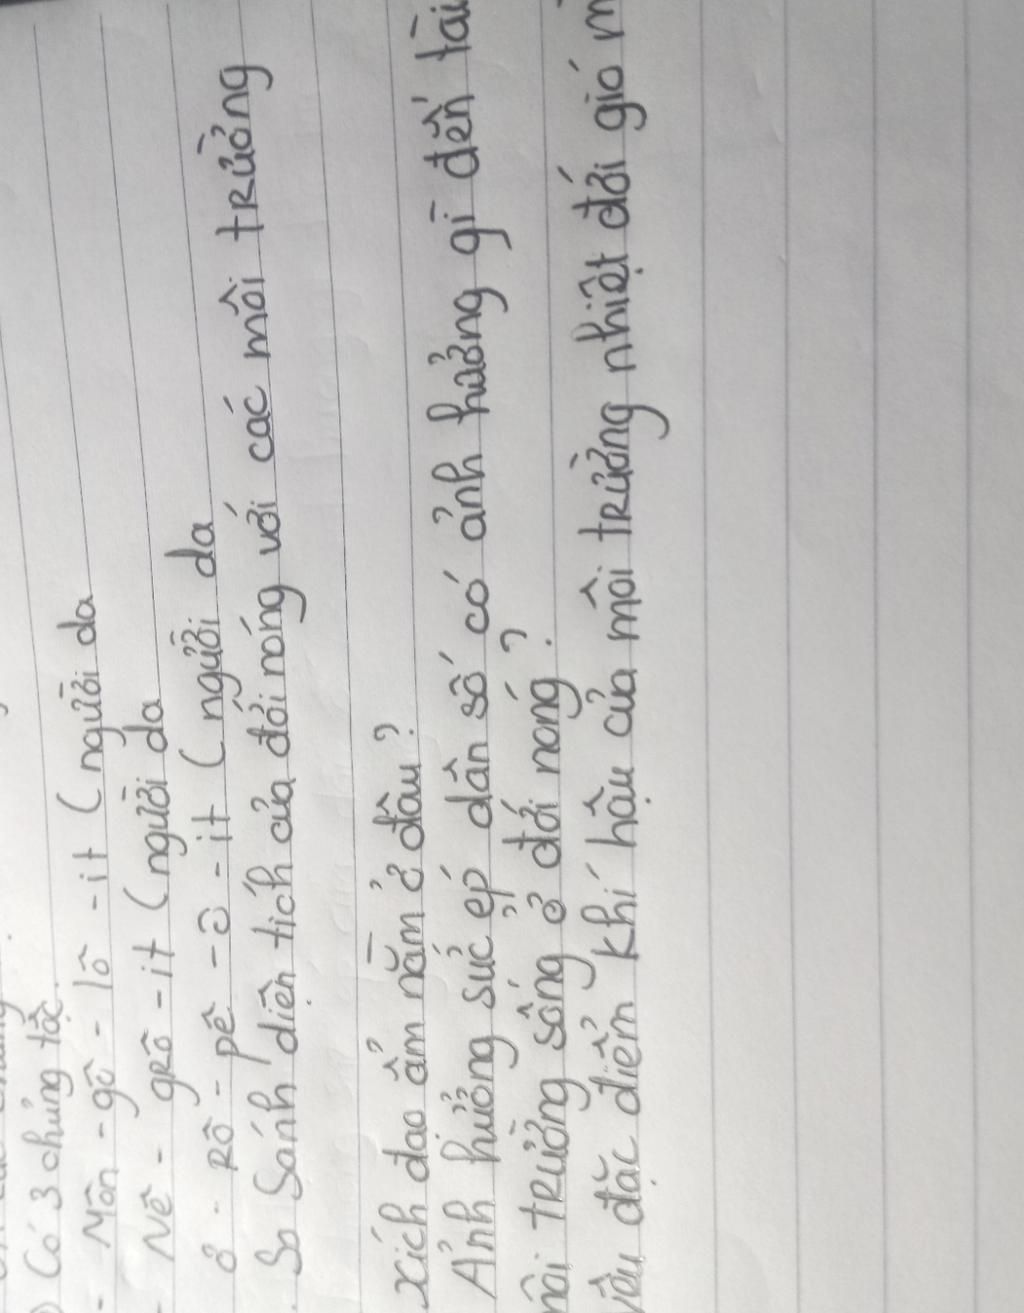 Có 3 chủng tộc.
- Môn - gô - lô - it (người da
- Nê - grô - it (người da
Ơ - rô - pê - ô - it (người da
So Sánh diện tích của đới nóng với các môi trường
xích đạo ẩm nằm ở đâu?
Ảnh hưởng sức ép dân số có ảnh hưởng gì đến tài
môi trường sống ở đới nóng?
đặc điểm khí hậu của môi trường nhiệt đới gió